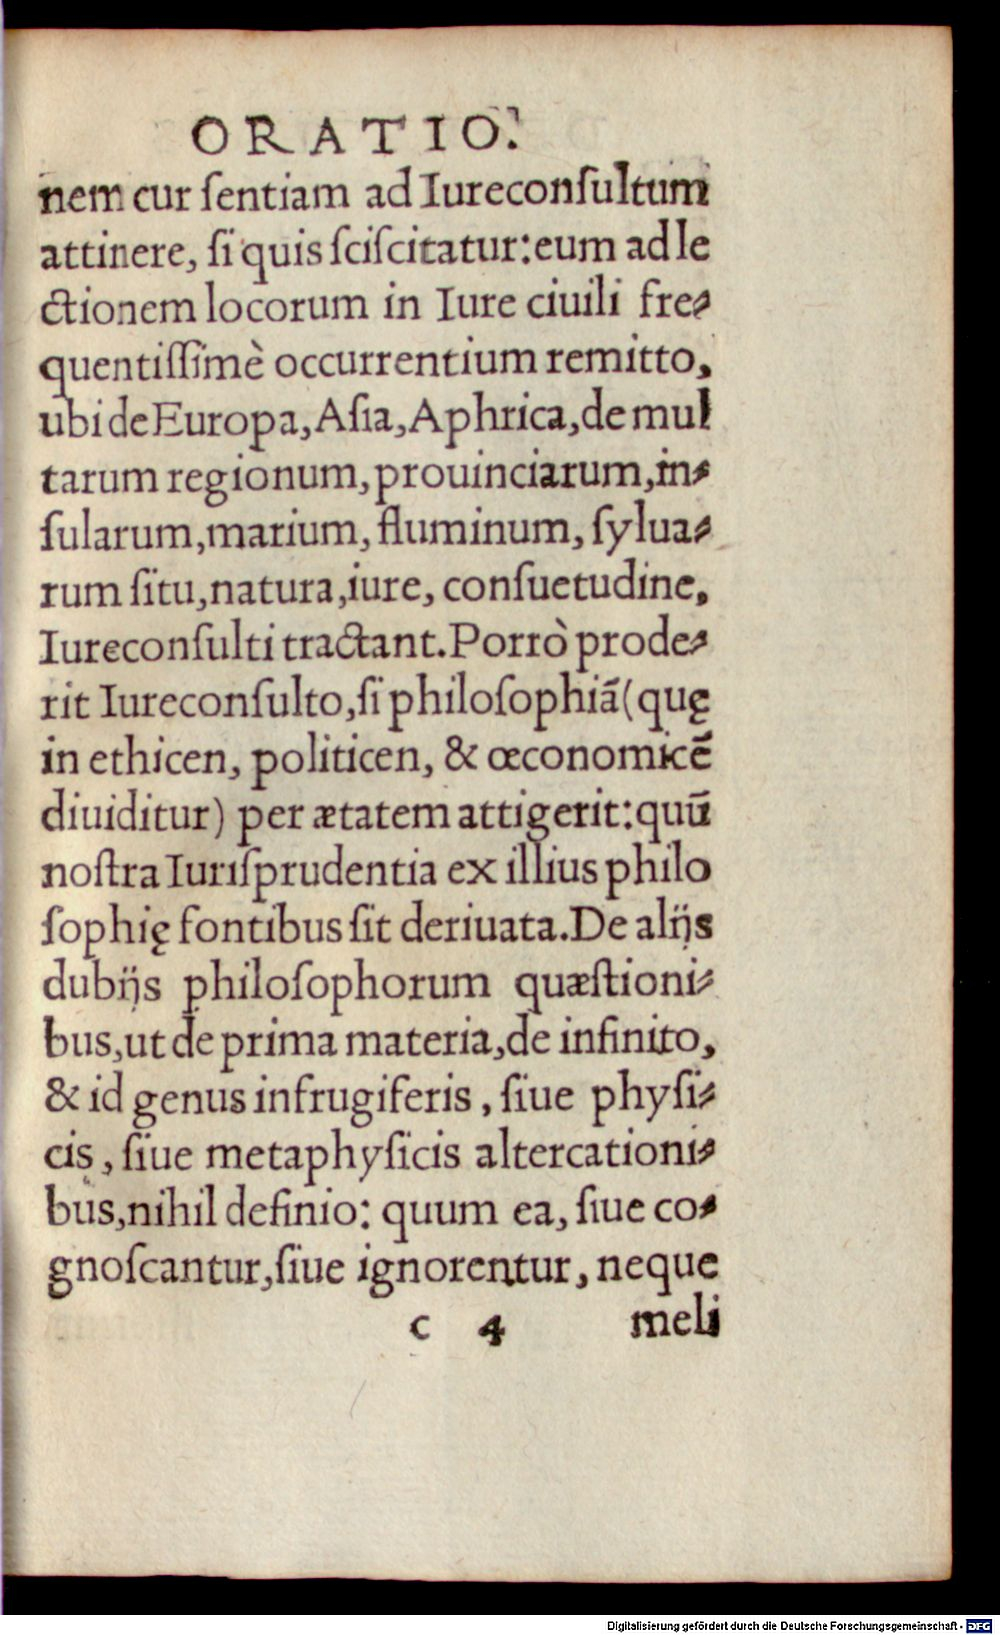 ORATIO.
nem cur ſentiam ad Iureconſultum
attinere, ſi quis ſciſcitatur: eum ad le
ctionem locorum in Iure ciuili fre⸗
quentiſſimè occurrentium remitto,
ubi de Europa, Aſia, Aphrica, de mul
tarum regionum, prouinciarum, in⸗
ſularum, marium, fluminum, ſylua⸗
rum ſitu, natura, iure, conſuetudine,
Iureconſulti tractant. Porrò prode⸗
rit Iureconſulto, ſi philoſophiā (quę
in ethicen, politicen, & œconomicē
diuiditur) per ætatem attigerit: quū
noſtra Iuriſprudentia ex illius philo
ſophię fontibus ſit deriuata. De alijs
dubijs philoſophorum quæſtioni⸗
bus, ut de prima materia, de infinito,
& id genus infrugiferis, ſiue phyſi⸗
cis, ſiue metaphyſicis altercationi⸗
bus, nihil definio: quum ea, ſiue co⸗
gnoſcantur, ſiue ignorentur, neque
c 4 meli
Digitalisierung gefördert durch die Deutsche Forschungsgemeinschaft - DFG